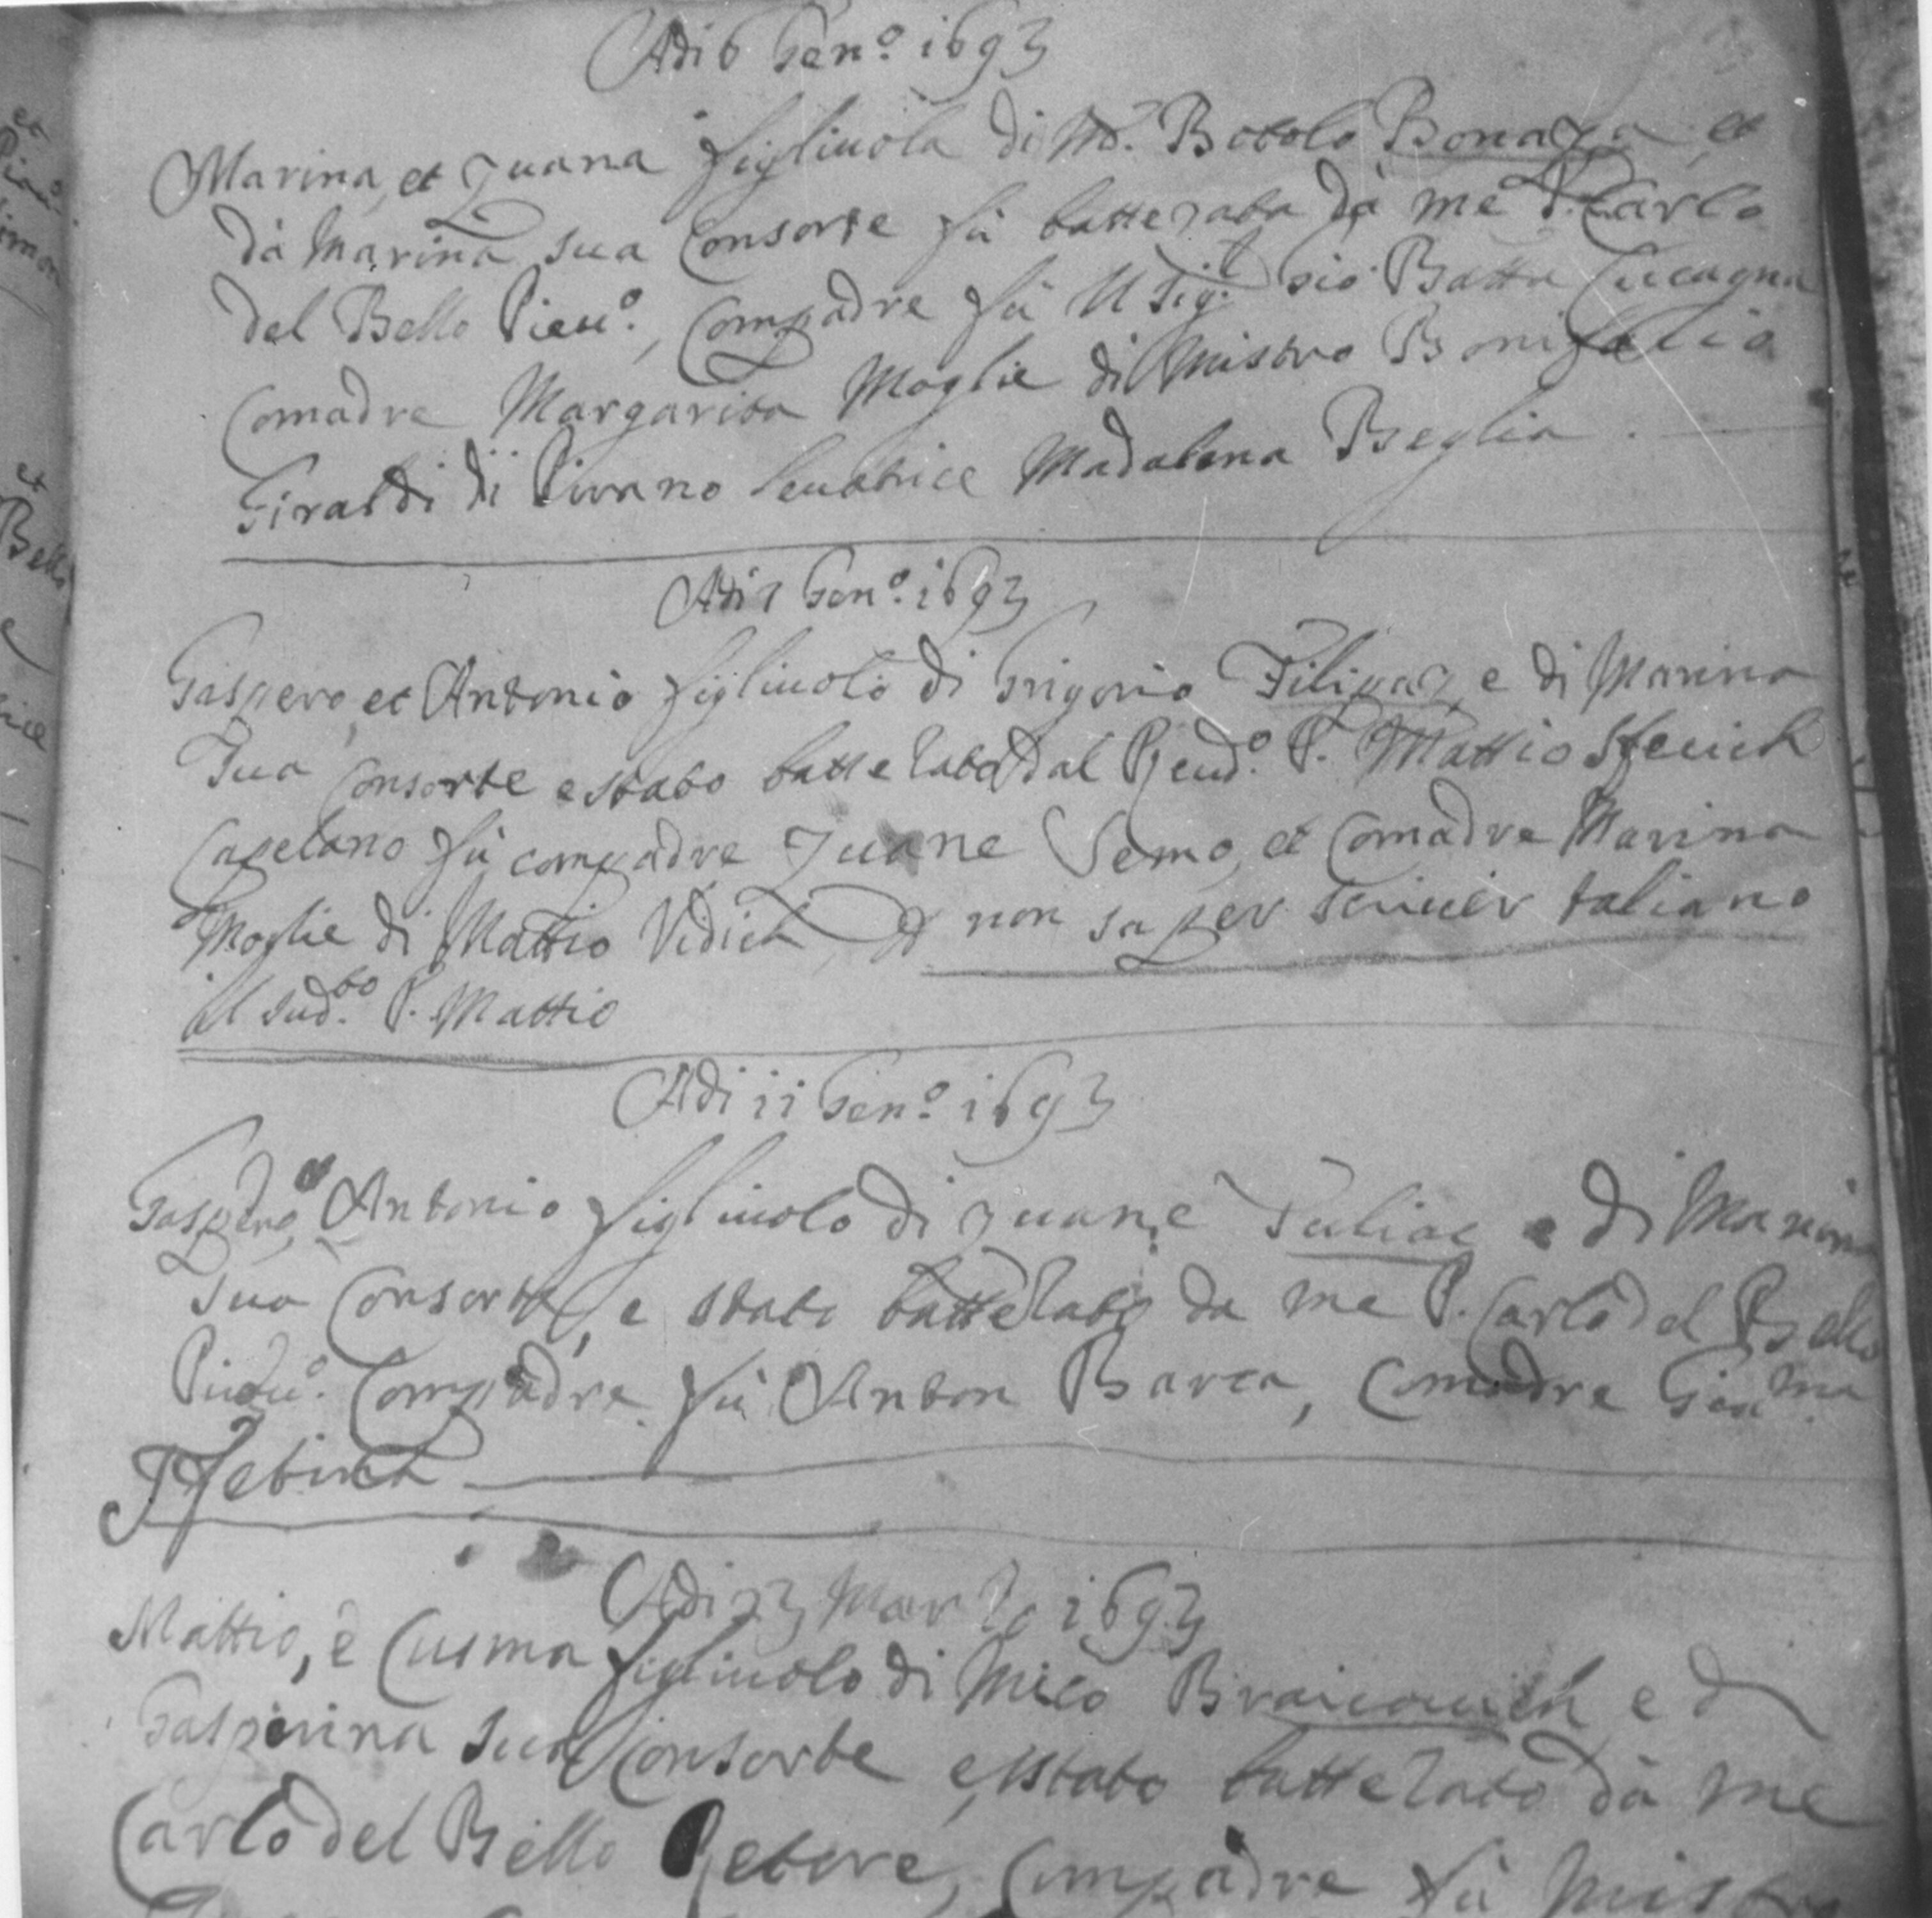 Adi 6 Gen.º 1693
Marina, et Zuana figliuola di M.º Botolo Bonaza et
dà Marina sua Consorte fù battezata dà me P. Carlo
del Bello Pieu.º, Compadre fù Il Sig.r Gio Batta Cucagna
Comadre Margarita Moglie di Mistro Bonifatio
Giraldi di Pirano leuatrice Madalena Beglia.
Adi 7 Gen.º 1693
Gaspero, et Antonio figliuolo di Grigorio Filipaz, e di Marina
Sua Consorte e stato battezato dal Reud.º P. Mattio Steuich
Capelano fù compadre Zuane Semo, et Comadre Marina
Moglie di Mattio Vidich, non saper scriuer taliano
il sud.to P. Mattio
Adi 11 Gen.º 1693
Gaspero, et Antonio figliuolo di Zuane Tuliac e di Marina
Sua Consorte, e stato battezato da me P. Carlo del Bello
Pieu.º Compadre fù Anton Barca, Comadre
Adi 23 Marzo 1693
Mattio, e Cusma figliuolo di Mico Braicouich e di
Gasperina Sua Consorte e stato battezato dà me
Carlo del Bello Retore, Compadre fù Mistro